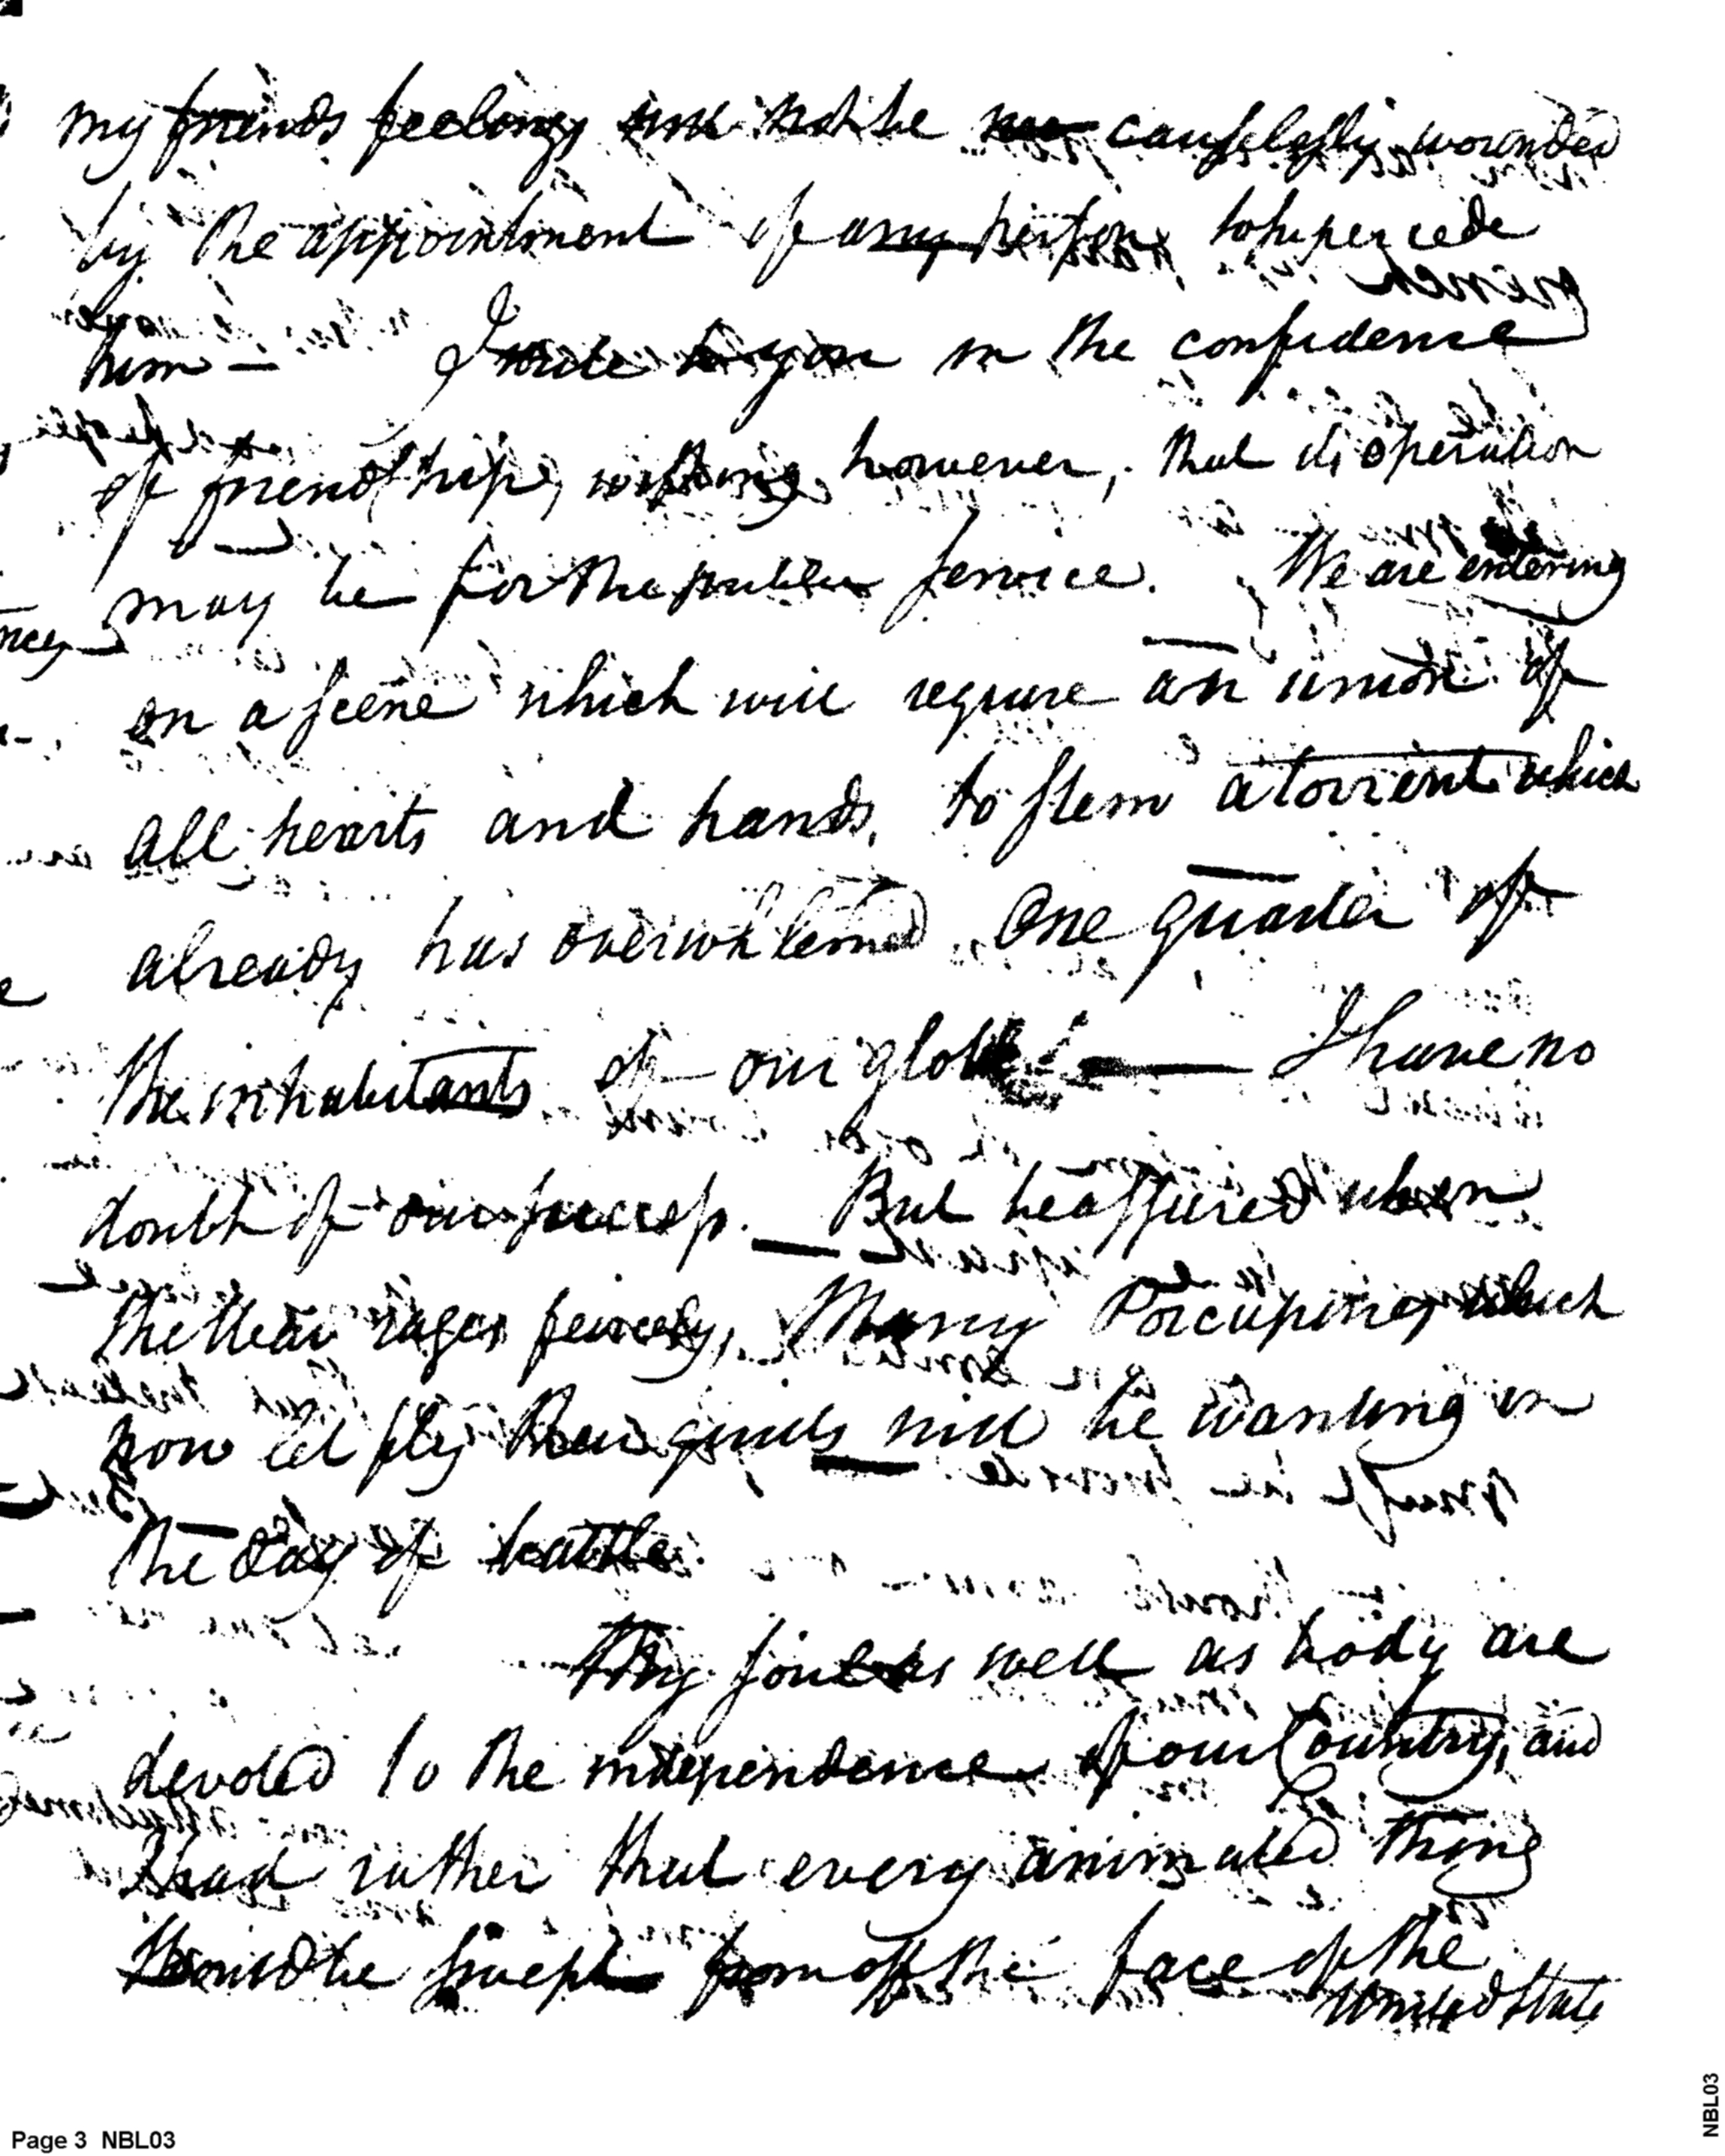 my friends feelings will not be causelessly wounded
by the appointment of any person, to supercede
him — I write to you in the confidence
of friendship, wishing, however, that its operation
may be for the public service. We are entering
on a scene which will require an union of
all hearts and hands, to stem a torrent which
already has overwhlemed one quarter of
the inhabitants of our globe — I have no
doubt of our success. — But be assured when
the War rages feircely, Many Porcupines, which
now let fly their quills will be wanting in
the day of battle.
My soul as well as body are
devoted to the independence of our Country, and
I had rather that every animated thing
should be swept from off the face of the
United States
Page 3 NBL03
NBL03